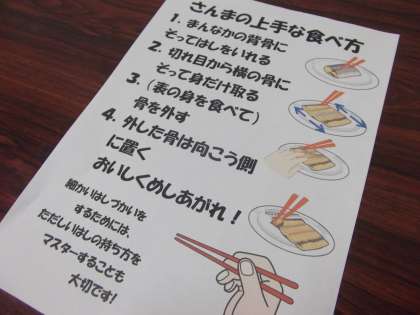 さんまの上手な食べ方
1. まんなかの背骨に
そってはしをいれる
2. 切れ目から横の骨に
そって身だけ取る
3. (表の身を食べて)
骨を外す
4. 外した骨は向こう側
に置く
おいしくめしあがれ!
細かいはしづかいを
するためには、
ただしいはしの持ち方を
マスターすることも
大切です!